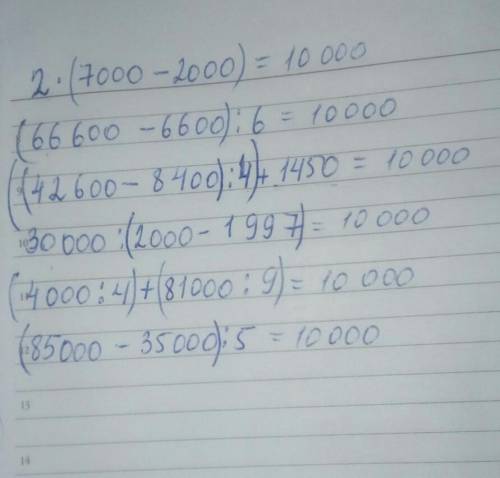 2 · (7000 - 2000) = 10 000
(66 600 - 6600) : 6 = 10 000
((42 600 - 8 400) : 4) + 1450 = 10 000
30 000 : (2000 - 1 997) = 10 000
(4000 : 4) + (81000 : 9) = 10 000
(85000 - 35000) : 5 = 10 000
13
14